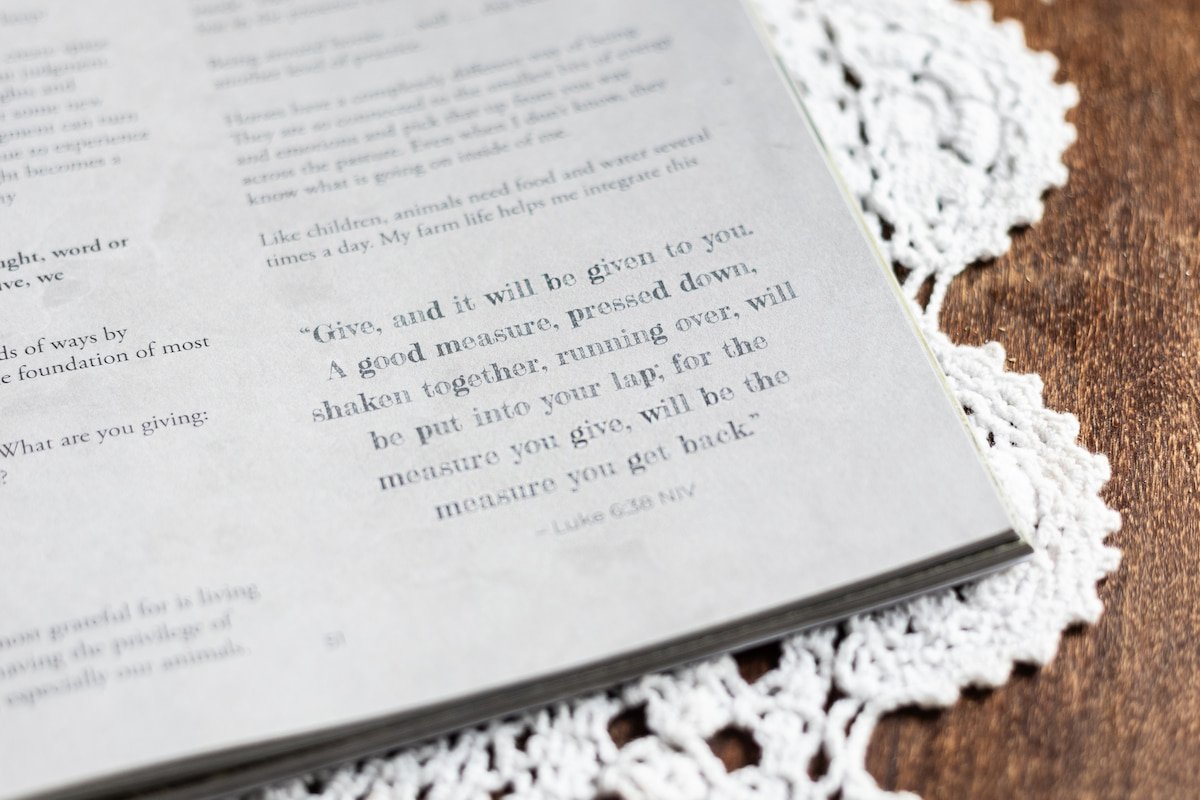 judgment.
ghts and
some new
gment can turn
ue to experience
ght becomes a
ught, word or
ve, we
ds of ways by
e foundation of most
What are you giving:
?
most grateful for is living
aving the privilege of
especially our animals.
another level of
Horses have a completely different way of being
They are so connected to the smallest bits of energy
and emotions and pick that up from you way
across the pasture. Even when I don't know, they
know what is going on inside of me.
Like children, animals need food and water several
times a day. My farm life helps me integrate this
“Give, and it will be given to you.
A good measure, pressed down,
shaken together, running over, will
be put into your lap; for the
measure you give, will be the
measure you get back.”
– Luke 6:38 NIV